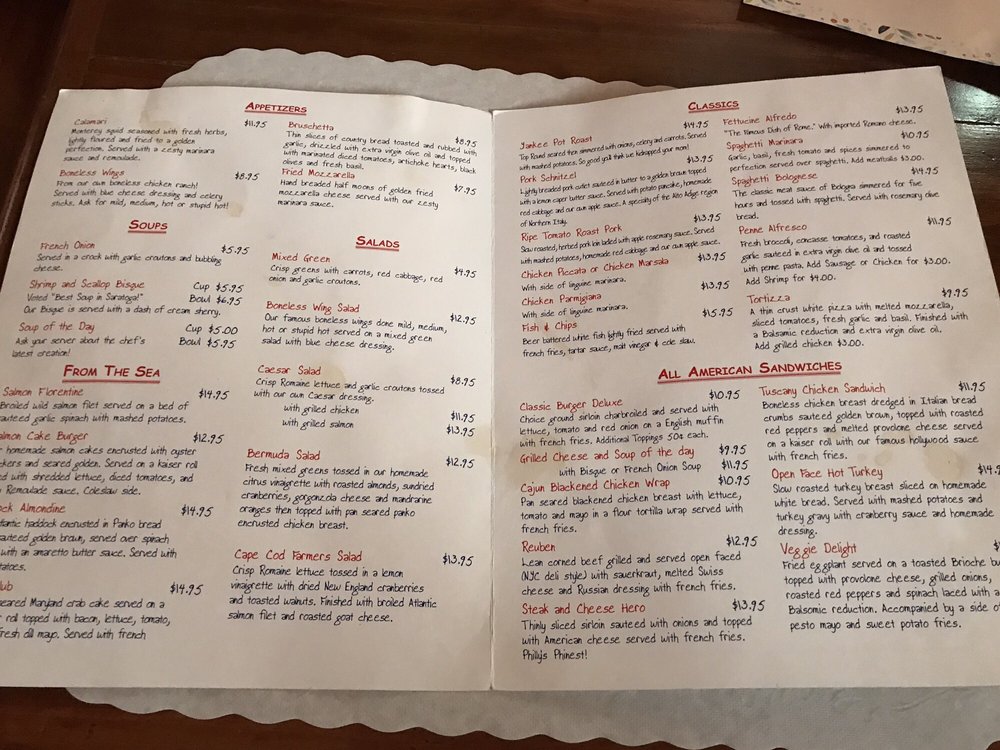 APPETIZERS
Calamari $11.95
Monterey squid seasoned with fresh herbs,
lightly floured and fried to a golden
perfection. Served with a zesty marinara
sauce and remoulade.
Boneless Wings $8.95
From our own boneless chicken ranch!
Served with blue cheese dressing and celery
sticks. Ask for mild, medium, hot or stupid hot!
Bruschetta $8.95
Thin slices of country bread toasted and rubbed with
garlic, drizzled with extra virgin olive oil and topped
with marinated diced tomatoes, artichoke hearts, black
olives and fresh basil.
Fried Mozzarella $7.95
Hand breaded half moons of golden fried
mozzarella cheese served with our zesty
marinara sauce.
SOUPS
French Onion $5.95
Served in a crock with garlic croutons and bubbling
cheese.
Shrimp and Scallop Bisque Cup $5.95
Voted "Best Soup in Saratoga!" Bowl $6.95
Our Bisque is served with a dash of cream sherry.
Soup of the Day Cup $5.00
Ask your server about the chef's Bowl $5.95
latest creation!
FROM THE SEA
Salmon Florentine $14.95
Broiled wild salmon filet served on a bed of
sauteed garlic spinach with mashed potatoes.
almon Cake Burger $12.95
homemade salmon cakes encrusted with oyster
kers and seared golden. Served on a kaiser roll
ed with shredded lettuce, diced tomatoes, and
Remoulade sauce. Coleslaw side.
ock Almondine $14.95
tlantic haddock encrusted in Panko bread
auteed golden brown, served over spinach
with an amaretto butter sauce. Served with
tatoes.
lub $14.95
eared Maryland crab cake served on a
r roll topped with bacon, lettuce, tomato,
fresh dill mayo. Served with french
SALADS
Mixed Green $4.95
Crisp greens with carrots, red cabbage, red
onion and garlic croutons.
Boneless Wing Salad $12.95
Our famous boneless wings done mild, medium,
hot or stupid hot served on a mixed green
salad with blue cheese dressing.
Caesar Salad $8.95
Crisp Romaine lettuce and garlic croutons tossed
with our own Caesar dressing.
with grilled chicken $11.95
with grilled salmon $13.95
Bermuda Salad $12.95
Fresh mixed greens tossed in our homemade
citrus vinaigrette with roasted almonds, sundried
cranberries, gorgonzola cheese and mandrine
oranges then topped with pan seared panko
encrusted chicken breast.
Cape Cod Farmers Salad $13.95
Crisp Romaine lettuce tossed in a lemon
vinaigrette with dried New England cranberries
and toasted walnuts. Finished with broiled Atlantic
salmon filet and roasted goat cheese.
CLASSICS
Yankee Pot Roast $14.95
Top Round seared then simmered with onions, celery and carrots. Served
with mashed potatoes. So good you'll think we kidnapped your mom!
Pork Schnitzel $13.95
Lightly breaded pork cutlet sauteed in butter to a golden brown topped
with a lemon caper butter sauce. Served with potato pancake, homemade
red cabbage and our own apple sauce. A specialty of the Alto Adige region
of Northern Italy.
Ripe Tomato Roast Pork $13.95
Slow roasted, herbed pork loin ladled with apple rosemary sauce. Served
with mashed potatoes, homemade red cabbage and our own apple sauce.
Chicken Piccata or Chicken Marsala $13.95
With side of linguine marinara.
Chicken Parmigiana $13.95
With side of linguine marinara.
Fish & Chips $15.95
Beer battered white fish lightly fried served with
french fries, tartar sauce, malt vinegar & cole slaw.
Fettucine Alfredo $13.95
"The Famous Dish of Rome." With imported Romano cheese.
Spaghetti Marinara $10.95
Garlic, basil, fresh tomato and spices simmered to
perfection served over spaghetti. Add meatballs $3.00.
Spaghetti Bolognese $14.95
The classic meat sauce of Bologna simmered for five
hours and tossed with spaghetti. Served with rosemary olive
bread.
Penne Alfresco $11.95
Fresh broccoli, concasse tomatoes, and roasted
garlic sauteed in extra virgin olive oil and tossed
with penne pasta. Add Sausage or Chicken for $3.00.
Add Shrimp for $4.00.
Tortizza $9.95
A thin crust white pizza with melted mozzarella,
sliced tomatoes, fresh garlic and basil. Finished with
a Balsamic reduction and extra virgin olive oil.
Add grilled chicken $3.00.
ALL AMERICAN SANDWICHES
Classic Burger Deluxe $10.95
Choice ground sirloin charbroiled and served with
lettuce, tomato and red onion on a English muffin
with french fries. Additional Toppings 50¢ each.
Grilled Cheese and Soup of the day $9.95
with Bisque or French Onion Soup $11.95
Cajun Blackened Chicken Wrap $10.95
Pan seared blackened chicken breast with lettuce,
tomato and mayo in a flour tortilla wrap served with
french fries.
Reuben $12.95
Lean corned beef grilled and served open faced
(NJC deli style) with sauerkraut, melted Swiss
cheese and Russian dressing with french fries.
Steak and Cheese Hero $13.95
Thinly sliced sirloin sauteed with onions and topped
with American cheese served with french fries.
Philly's Phinest!
Tuscany Chicken Sandwich $11.95
Boneless chicken breast dredged in Italian bread
crumbs sauteed golden brown, topped with roasted
red peppers and melted provolone cheese served
on a kaiser roll with our famous hollywood sauce
with french fries.
Open Face Hot Turkey $14.9
Slow roasted turkey breast sliced on homemade
white bread. Served with mashed potatoes and
turkey gravy with cranberry sauce and homemade
dressing.
Veggie Delight
Fried eggplant served on a toasted Brioche bu
topped with provolone cheese, grilled onions,
roasted red peppers and spinach laced with a
Balsomic reduction. Accompanied by a side o
pesto mayo and sweet potato fries.